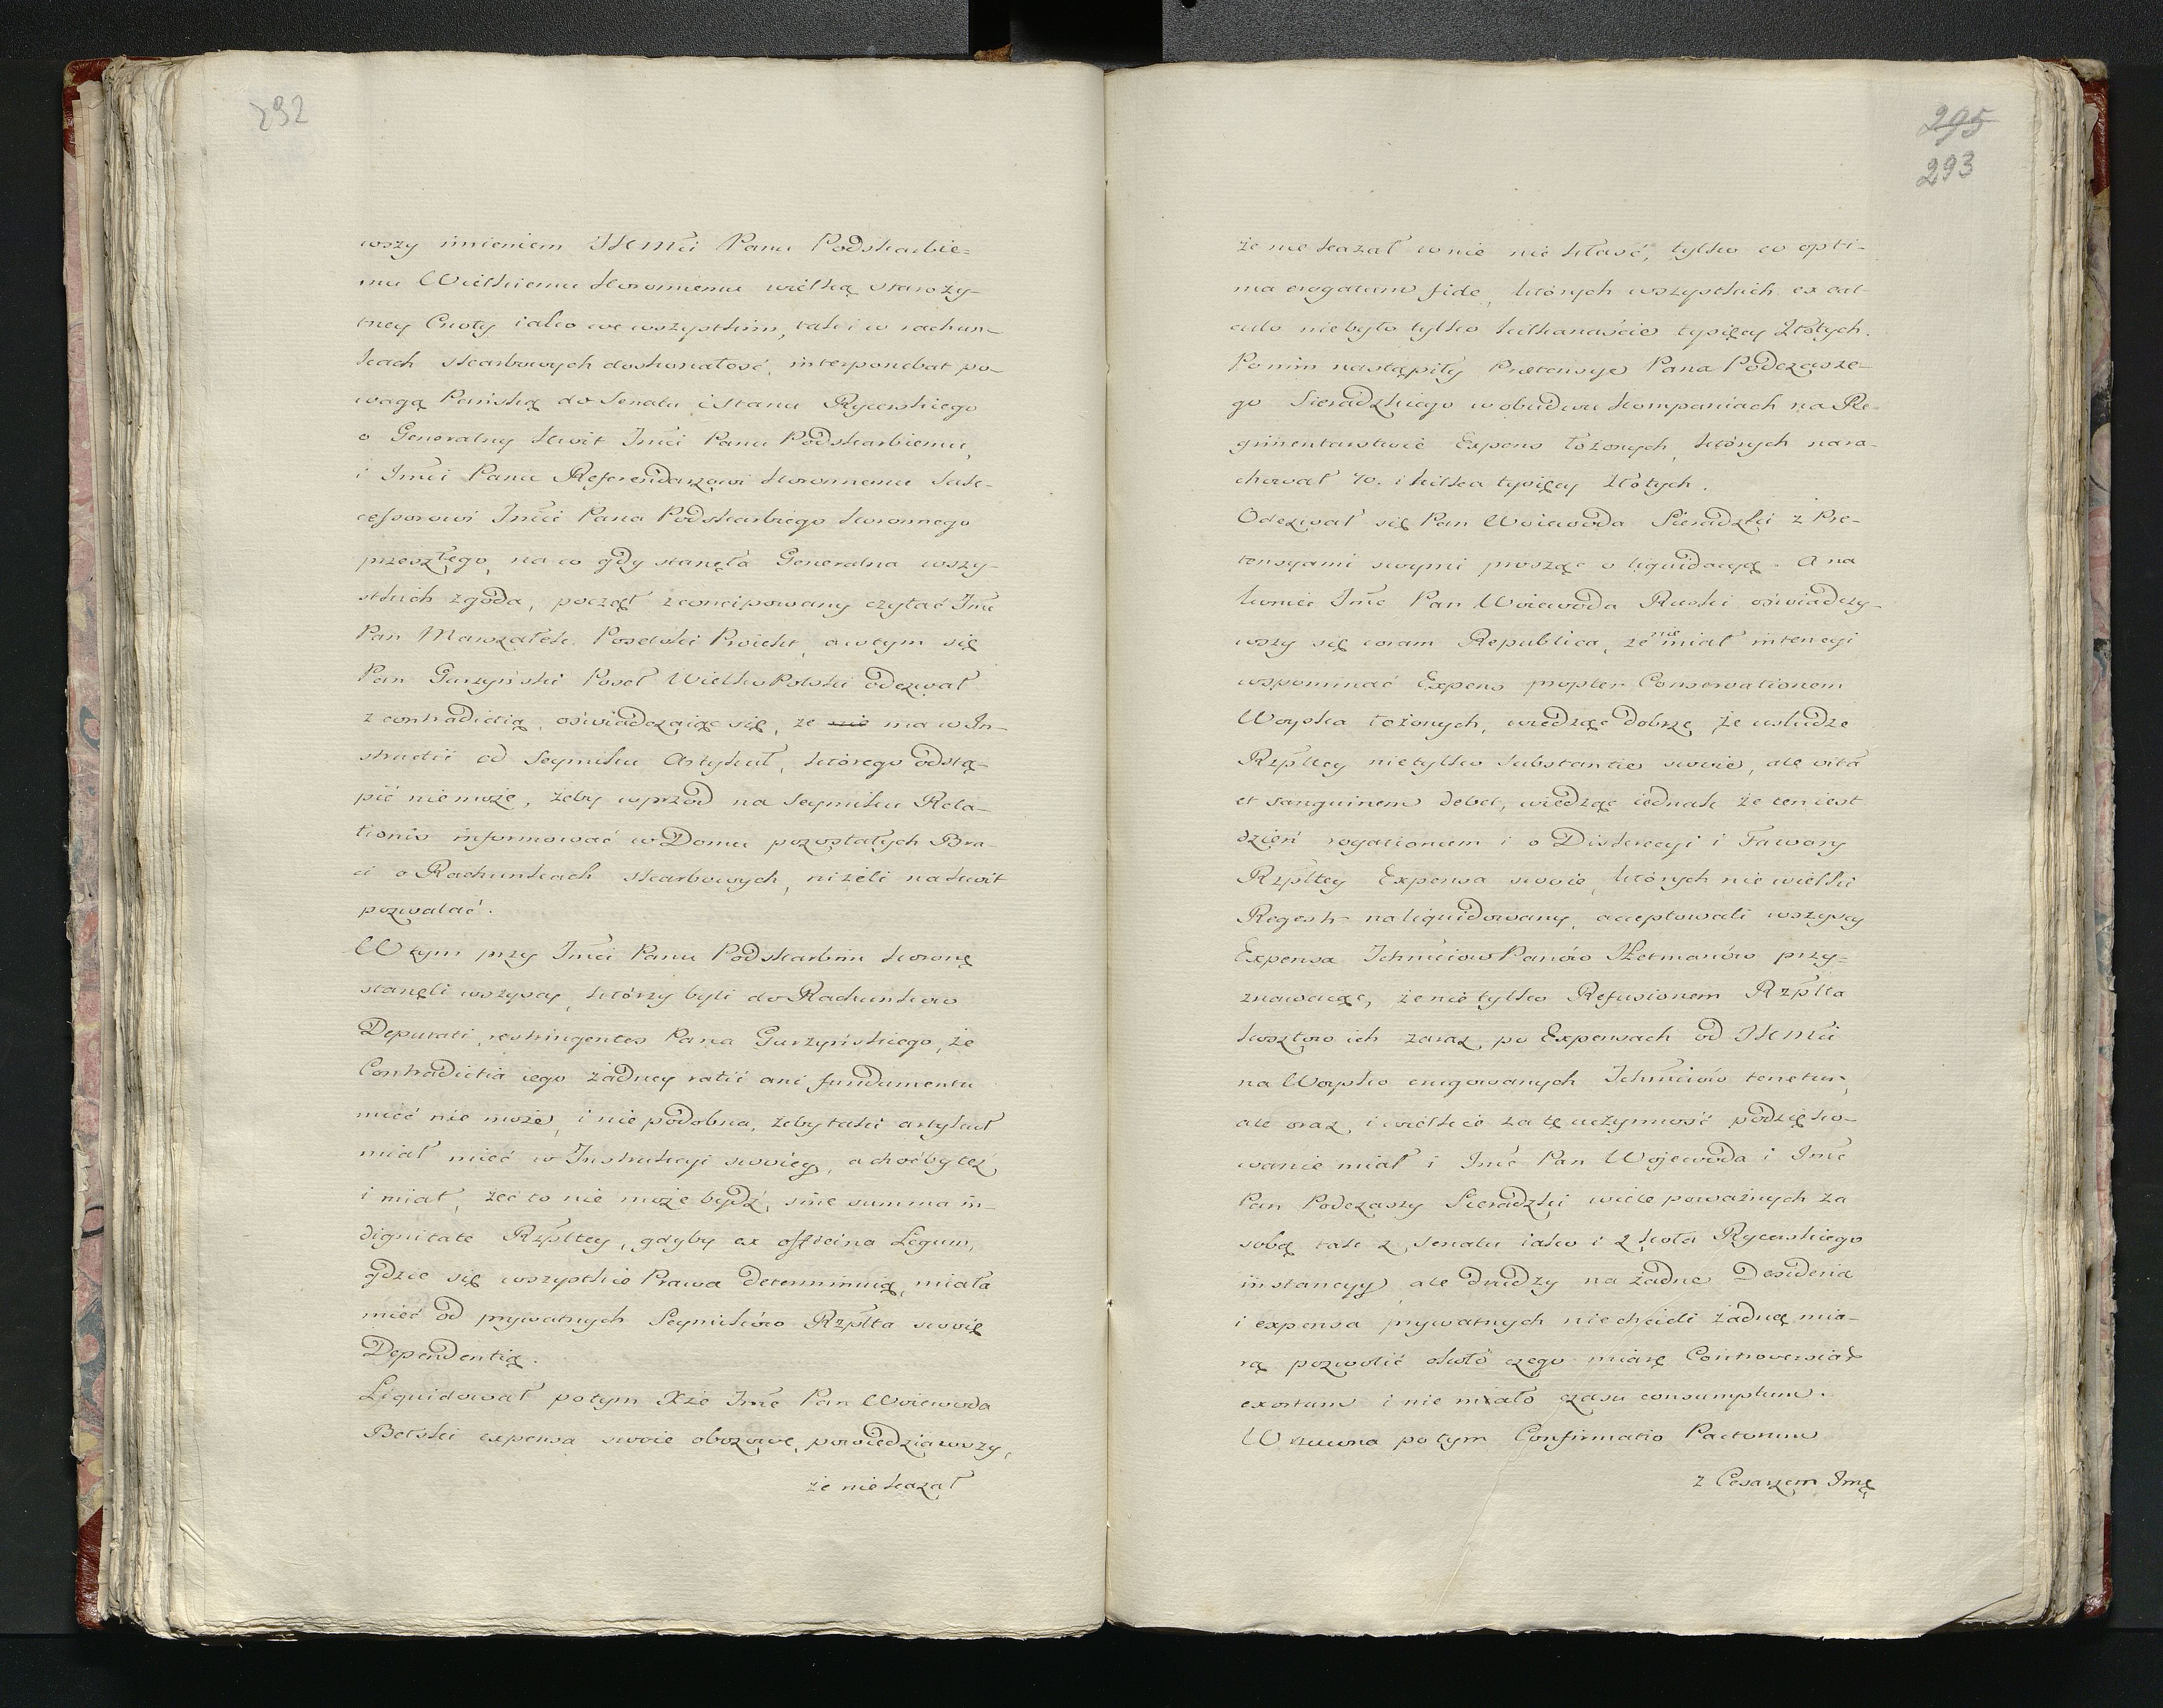 292
wszy imieniem JKMći Panu Podskarbie=
mu Wielkiemu Koronnemu wielką staroży-
tney Cnoty iako we wszystkim, tak i w rachun-
kach skarbowych doskonałość, interponebat po-
wagą Pańską do Senatu i Stanu Rycerskiego
o Generalny kwit Jmći Panu Podskarbiemu,
i Jmći Panu Referendarzowi Koronnemu Suk-
cessorowi Jmći Pana Podskarbiego Koronnego
przeszłego, na co gdy stanęła Generalna wszy-
stkich zgoda, począł zconcipowany czytać Jmć
Pan Marszałek Poselski Proiekt, a wtym się
Pan Gurzyński Poseł Wielko Polski odezwał
z contradictią, oświadczaiąc się, że nie ma w In-
structii od Seymiku Artykuł, którego odstą-
pić niemoże, żeby wprzod na Seymiku Rela-
tionis informować w Domu pozostałych Bra-
ci o Rachunkach skarbowych, niżeli na kwit
pozwalać.
W tym przy Jmći Panu Podskarbim Koronę
stanęli wszyscy, którzy byli do Rachunków
Deputati, restringentes Pana Gurzyńskiego, że
Contradictia iego żadney ratii ani fundamentu
mieć nie może, i nie podobna, żeby taki artykuł
miał mieć w Instrukcyi swoiey, a choćby też
i miał, żeć to nie może bydź, sine summa in-
dignitate Rzpltey, gdyby ex officina Legum,
gdzie się wszystkie Prawa determinuią, miała
mieć od prywatnych Seymików Rzplta swoię
Dependentią.
Liquidował potym Xże Jmć Pan Woiewoda
Bełski expensa swoie obozowe, powiedziawszy,
że nie kazał
295
293
że nie kazał w nie nic kłaść, tylko co opti-
ma erogatum fide, których wszystkich ex cal-
culo niebyło tylko kilkanaście tysięcy Złotych.
Po nim nastąpiły Prætensye Pana Podczasze-
go Sieradzkiego w obudwu kompaniach na Re-
gimentarstwie Expens łożonych, których nara-
chował 40. i kilka tysięcy Złotych.
Odezwał się Pan Woiewoda Sieradzki z Pre-
tensyami swymi prosząc o liquidacyą. A na
koniec Jmć Pan Woiewoda Ruski oświadczy-
wszy się coram Republica, że nie miał intencyi
wspominać Expens propter Conservationem
Woyska łożonych, wiedząc dobrze, że usłudze
Rzpltey nietylko substantie swoie, ale vita
et sanguinem debet, wiedząc iednak że ten iest
dzień rogationum i o Diskrecyi i Fawory
Rzpltey Expensa swoie, których nie wielki
Regestr naliquidowany, acceptowali wszyscy
Expensa Ichmciow Panów Hetmanów przy=
znawaiąc, że nie tylko Refusionem Rzplta
kosztow ich zaraz po Expensach od JKMći
na Woysko erogowanych Ichmciów tenetur,
ale oraz i wielkie za tę uczynność podzięko-
wanie miał i Jmć Pan Wojewoda i Jmć
Pan Podczaszy Sieradzki wiele poważnych za
sobą tak z Senatu iako i z koła Rycerskiego
instancyy, ale drudzy na żadne Desideria
i expensa prywatnych nie chcieli żadną mia-
rą pozwolić około czego miarę Controversiae
exortum i nie miało czasu consumptum.
W  potym Confirmatio Pactorum
z Cesarzem Jmę